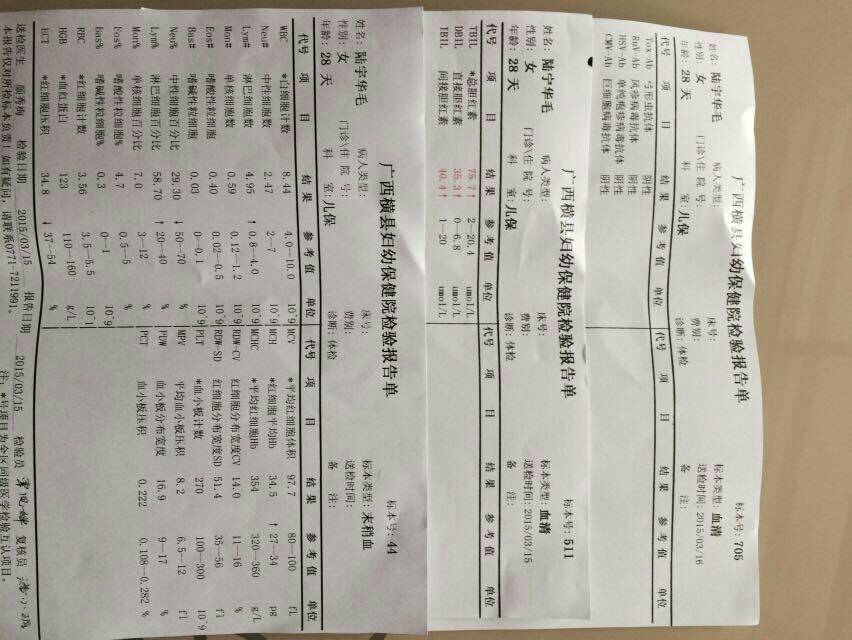 广西横县妇幼保健院检验报告单
标本号: 705
姓名: 陆宇华毛 病人类型: 床号: 标本类型: 血清
性别: 女 门诊\住院号: 费别: 送检时间: 2015/03/16
年龄: 28 天 科 室: 儿保 诊断: 体检 备 注:
代号 项 目 结 果 参 考 值 单位 代号 项 目 结 果 参 考 值 单位
Tox-Ab 弓形虫抗体 阴性
RuV-Ab 风疹病毒抗体 阴性
HSV-Ab 单纯疱疹病毒抗体 阴性
CMV-Ab 巨细胞病毒抗体 阴性
广西横县妇幼保健院检验报告单
标本号: 511
姓名: 陆宇华毛 病人类型: 床号: 标本类型: 血清
性别: 女 门诊\住院号: 费别: 送检时间: 2015/03/15
年龄: 28 天 科 室: 儿保 诊断: 体检 备 注:
代号 项 目 结 果 参 考 值 单位 代号 项 目 结 果 参 考 值 单位
TBIL *总胆红素 75.7↑ 2-20.4 umol/L
DBIL 直接胆红素 35.3↑ 0-6.8 umol/L
IBIL 间接胆红素 40.4↑ 1-20 umol/L
广西横县妇幼保健院检验报告单
标本号: 44
姓名: 陆宇华毛 病人类型: 床号: 标本类型: 末稍血
性别: 女 门诊\住院号: 费别: 送检时间:
年龄: 28 天 科 室: 儿保 诊断: 体检 备 注:
代号 项 目 结 果 参 考 值 单位 代号 项 目 结 果 参 考 值 单位
WBC *白细胞计数 8.44 4.0-10.0 10^9 MCV *平均红细胞体积 97.7 80-100 fL
Neu# 中性细胞数 2.47 2-7 10^9 MCH *红细胞平均Hb 34.5 ↑ 27-34 pg
Lym# 淋巴细胞数 4.95 ↑ 0.8-4.0 10^9 MCHC *平均红细胞Hb 354 320-360 g/L
Mon# 单核细胞数 0.59 0.12-1.2 10^9 RDW-CV 红细胞分布宽度CV 14.0 11-16 %
Eos# 嗜酸性粒细胞 0.40 0.02-0.5 10^9 RDW-SD 红细胞分布宽度SD 51.4 35-56 fl
Bas# 嗜碱性粒细胞 0.03 0-0.1 10^9 PLT *血小板计数 270 100-300 10^9
Neu% 中性细胞百分比 29.30 ↓ 50-70 % MPV 平均血小板压积 8.2 6.5-12 fl
Lym% 淋巴细胞百分比 58.70 ↑ 20-40 % PDW 血小板分布宽度 16.9 9-17 %
Mon% 单核细胞百分比 7.0 3-12 % PCT 血小板压积 0.222 0.108-0.282 %
Eos% 嗜酸性粒细胞% 4.7 0.5-5 %
Bas% 嗜碱性粒细胞% 0.3 0-1 10^9
RBC *红细胞计数 3.56 3.5-5.5 10^1
HGB *血红蛋白 123 110-160 g/L
HCT *红细胞压积 34.8 ↓ 37-54 %
送检医生 颜秀梅 检验日期 2015/03/15 报告日期 2015/03/15 检验员 复核员
本报告仅对所检标本负责! 如有疑问, 请联系0771-7211991. 注: *号项目为全区同级医学检验互认项目。